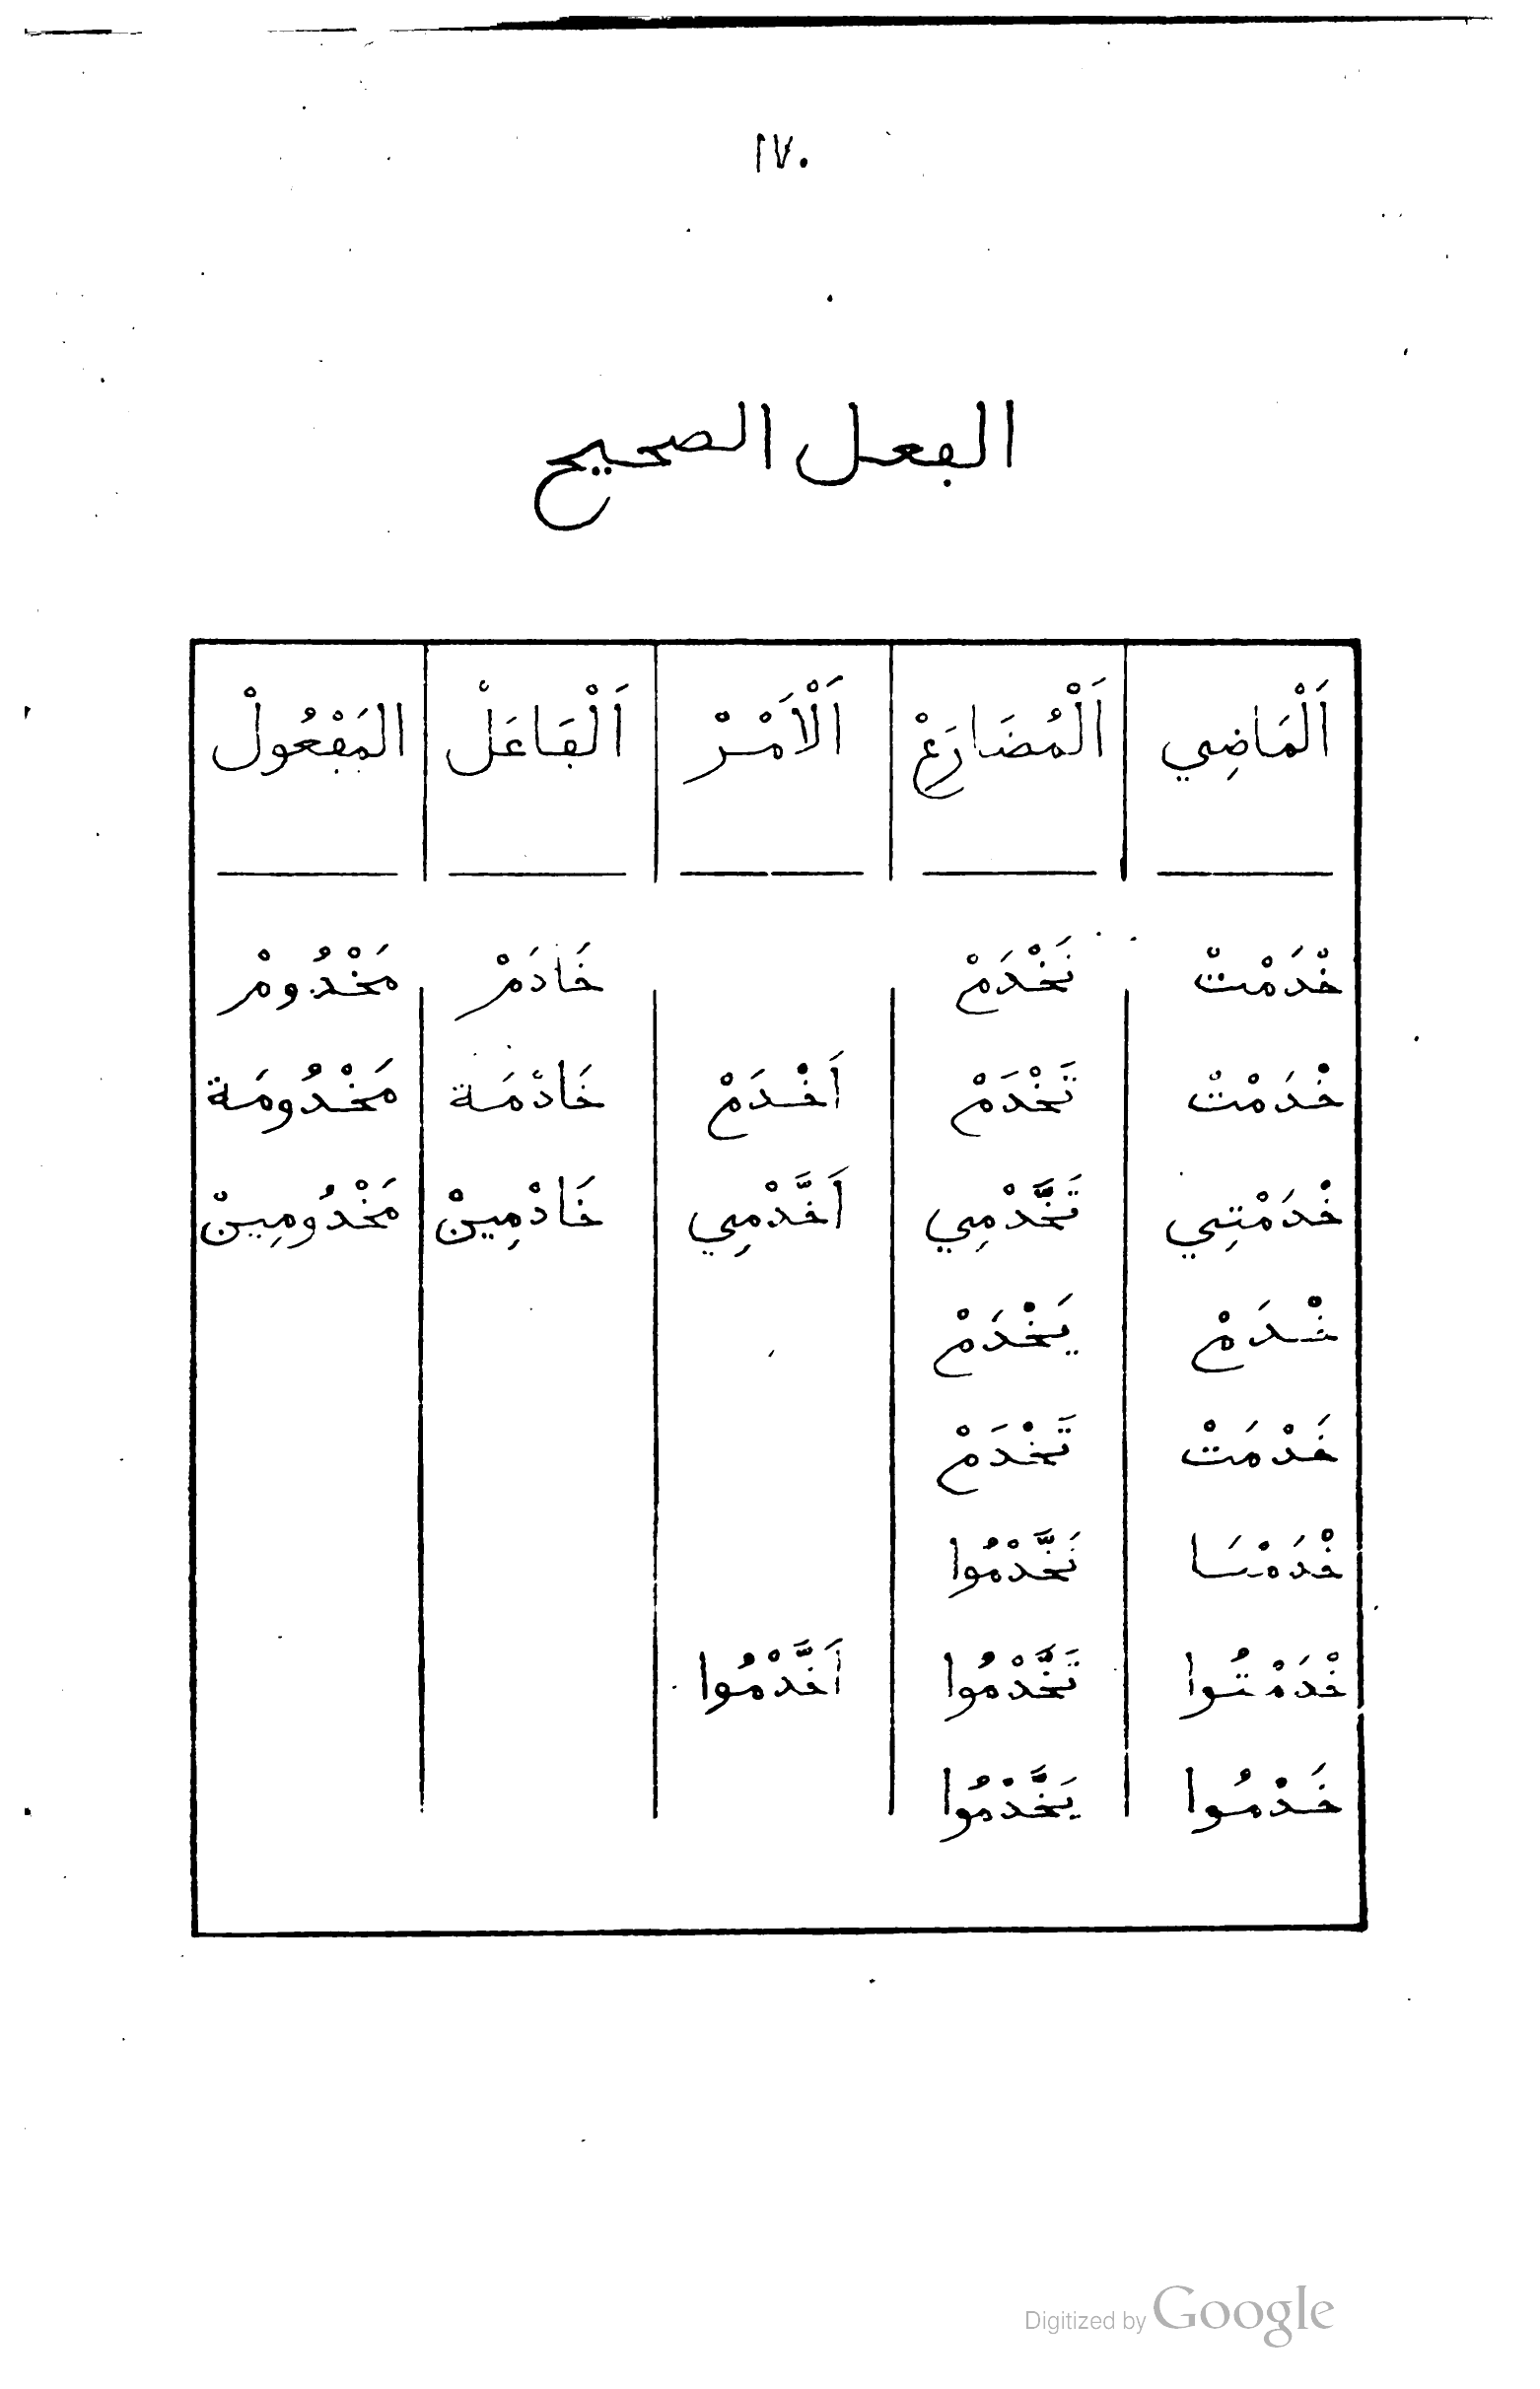 ١٧٠
الڢعل الصحيح
اَلْمَاضِي اَلْمُضَارَعْ اَلْاَمْرْ اَلْڢَاعَلْ المَڢْعُولْ
خْدَمْتْ نَخْدَمْ خَادَمْ مَخْدُومْ
خْدَمْتْ تَخْدَمْ اَخْدَمْ خَادْمَة مَخْدُومَة
خْدَمْتِي تَخَّدْمِي اَخَّدْمِي خَادْمِينْ مَخْدُومِينْ
خْدَمْ يَخْدَمْ
خَدْمَتْ تَخْدَمْ
خْدَمْنَا نَخَّدْمُوا
خْدَمْتُوا تَخَّدْمُوا اَخَّدْمُوا
خَدْمُوا يَخَّدْمُوا
Digitized by Google